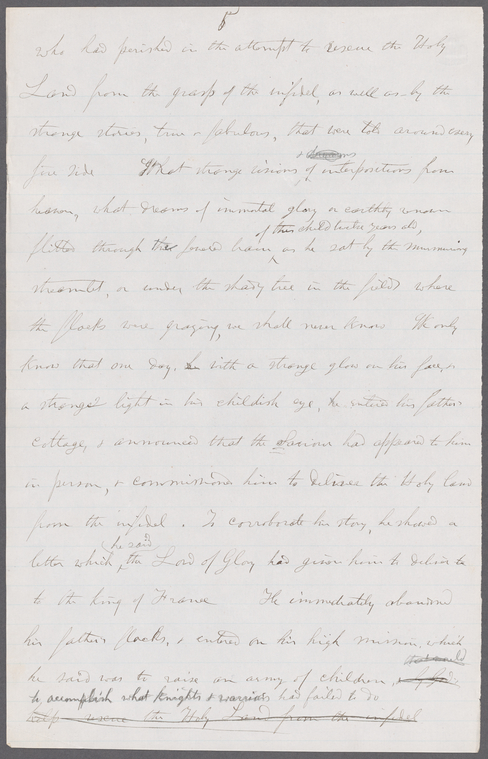 5
who had perished in the attempt to rescue the Holy
Land from the grasp of the infidel, as well as by the
strange stories, true or fabulous, that were told around every
fire side What strange visions of interpositions from
heaven, what dreams of immortal glory or earthly renown
of this child twelve years old,
flitted through the fevered brain as he sat by the murmuring
streamlet, or under the shady tree in the field where
the flocks were grazing, we shall never know We only
know that one day, with a strange glow on his face, &
a strange light in his childish eye, he enters his father's
cottage, & announced that the Saviour had appeared to him
in person, & commissioned him to deliver the Holy land
from the infidel. To corroborate his story, he showed a
he said
letter which, the Lord of Glory had given him to deliver
to the King of France He immediately abandoned
his father's flocks, & entered on his high mission, which
that would
he said was to raise an army of children,
to accomplish what Knights & warriors had failed to do
help rescue the Holy Land from the infidel